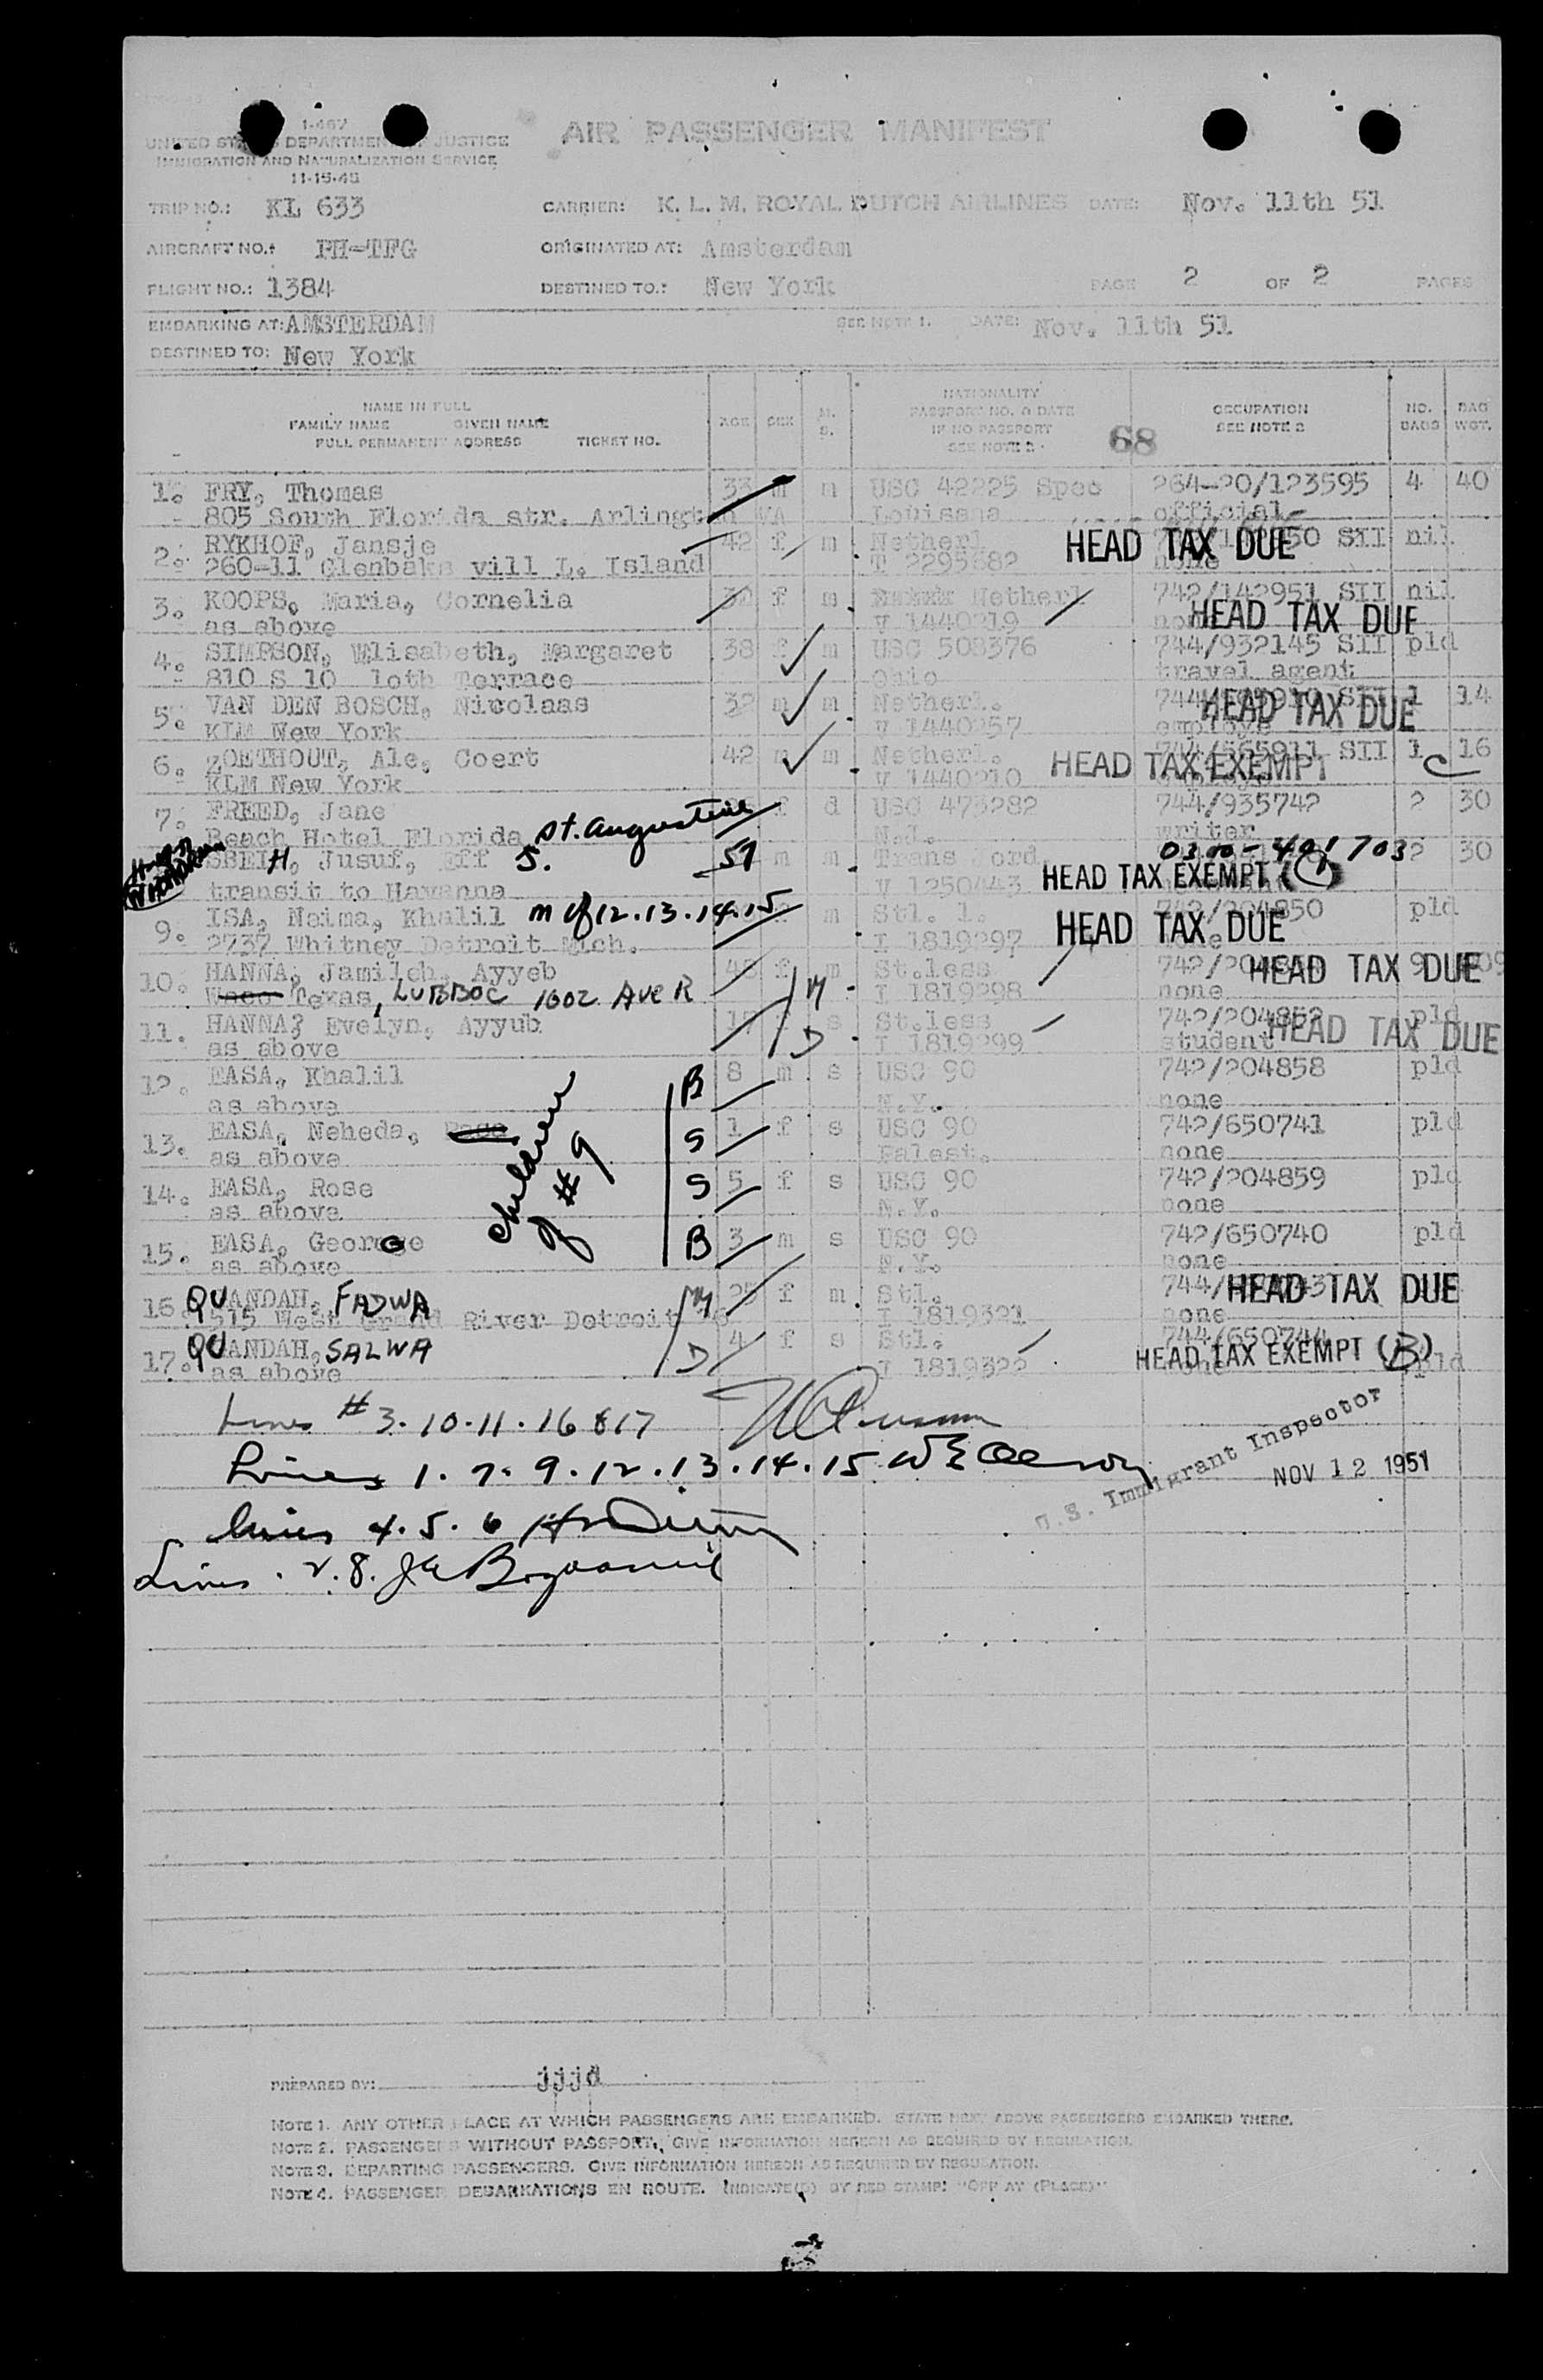 I-467
UNITED STATES DEPARTMENT OF JUSTICE
IMMIGRATION AND NATURALIZATION SERVICE
11-15-48
AIR PASSENGER MANIFEST
TRIP NO.: KL 633 CARRIER: K. L. M. ROYAL DUTCH AIRLINES DATE: Nov. 11th 51
AIRCRAFT NO.: PH-TFG ORIGINATED AT: Amsterdam
FLIGHT NO.: 1384 DESTINED TO.: New York PAGE 2 OF 2 PAGES
EMBARKING AT: AMSTERDAM SEE NOTE 1. DATE: Nov. 11th 51
DESTINED TO: New York
NAME IN FULL
FAMILY NAME GIVEN NAME
FULL PERMANENT ADDRESS TICKET NO.
AGE SEX M. S.
NATIONALITY
PASSPORT NO. & DATE
IF NO PASSPORT
SEE NOTE 2
68
OCCUPATION
SEE NOTE 2
NO. BAGS
BAG WGT.
1. FRY, Thomas 33 m m USC 42225 Spec 264-20/123595 4 40
805 South Florida str. Arlington VA Louisana official
2. RYKHOF, Jansje 42 f m Netherl. SII nil HEAD TAX DUE
260-11 vill L. Island none
3. KOOPS, Maria, Cornelia f m Netherl 742/142951 SII nil
as above V 1440219 HEAD TAX DUE
4. SIMPSON, Elisabeth, Margaret 38 f m USC 508376 744/932145 SII pld
810 S 10 loth Terrace Ohio travel agent
5. VAN DEN BOSCH, Nicolaas 32 m m Netherl. SII 1 14
KLM New York V 1440257 employe HEAD TAX DUE
6. ZOETHOUT, Ale, Coert 42 m m Netherl. 744/565911 SII 1 16
KLM New York V 1440210 HEAD TAX EXEMPT C
7. FREED, Jane f d USC 473282 744/935742 2 30
Beach Hotel Florida St. Augustine N.J. writer
SBEIH, Jusuf, Eff S. 51 m m Trans Jord. 0300-401703 2 30
transit to Havanna V 1250443 HEAD TAX EXEMPT
9. ISA, Naima, Khalil m of 12.13.14.15 m Stl. l. 742/204850 pld
2737 Whitney Detroit Mich. I 1819297 HEAD TAX DUE
10. HANNA, Jamileh, Ayyeb f m St.less HEAD TAX DUE
Waco Texas, LUBBOC 1602 AVE R M I 1819298 none
11. HANNA3 Evelyn, Ayyub 17 s St.less 742/204852 pld
as above D I 1819299 student HEAD TAX DUE
12. EASA, Khalil B 8 m s USC 90 742/204858 pld
as above N.Y. none
13. EASA, Neheda, S 1 f s USC 90 742/650741 pld
as above Palest. none
children of #9
14. EASA, Rose S 5 f s USC 90 742/204859 pld
as above N.Y. none
15. EASA, George B 3 m s USC 90 742/650740 pld
as above N.Y. none
16. QUANDAH, FADWA M 25 f m Stl. HEAD TAX DUE
515 West Grand River Detroit I 1819321 none
17. QUANDAH, SALWA 4 f s Stl. 744/650744
as above D I 1819322 HEAD TAX EXEMPT (B) pld
Lines #3.10.11.16 & 17
Lines 1.7.9.12.13.14.15
U.S. Immigrant Inspector
NOV 12 1951
Lines 4.5.6
Lines. 2.8.
PREPARED BY: jjjd
NOTE 1. ANY OTHER PLACE AT WHICH PASSENGERS ARE EMBARKED. STATE NEXT ABOVE PASSENGERS EMBARKED THERE.
NOTE 2. PASSENGERS WITHOUT PASSPORT, GIVE INFORMATION HEREON AS REQUIRED BY REGULATION.
NOTE 3. DEPARTING PASSENGERS. GIVE INFORMATION HEREON AS REQUIRED BY REGULATION.
NOTE 4. PASSENGER DEBARKATIONS EN ROUTE. INDICATE(S) BY RED STAMP: "OFF AT (PLACE)"